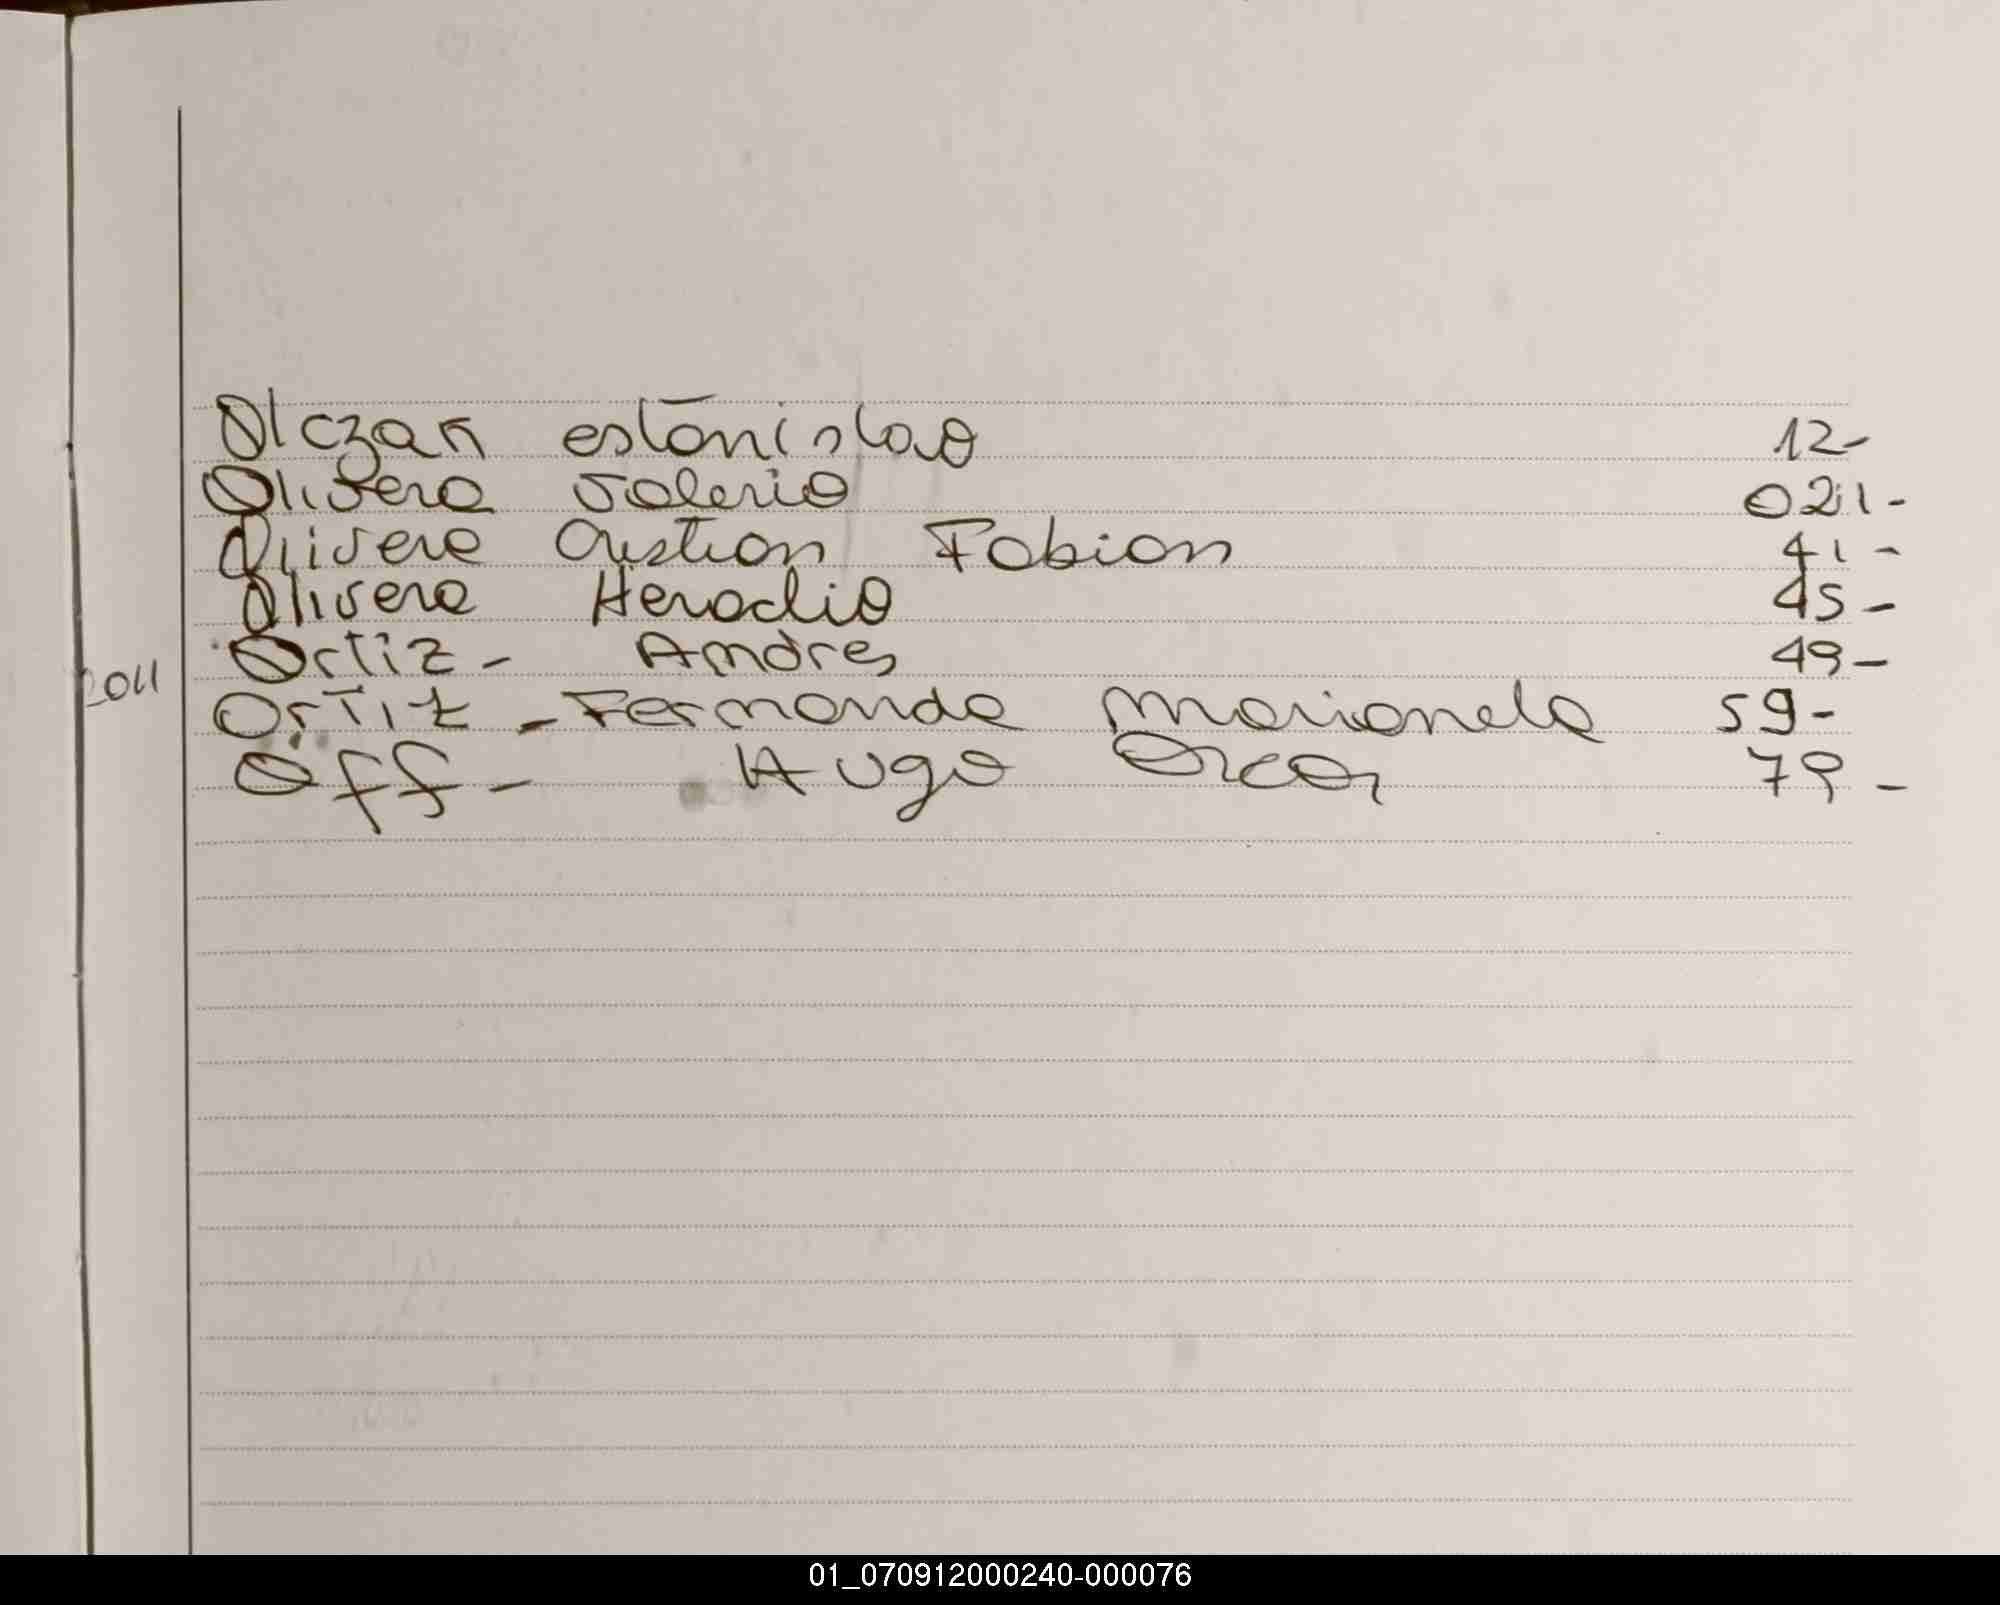 Olczak estanislao 12-
Olivera Valerio 021-
Olivera Cristian Fabian 41-
Olivera Heraclio 45-
Ortiz - Andres 49-
2011
Ortiz - Fernanda Marianela 59-
Off - Hugo Oscar 79-
01_070912000240-000076